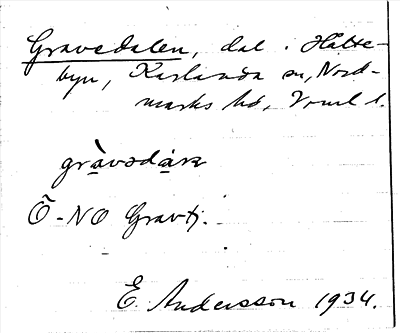 Gravedalen, dal i Hälte-
byn, Karlanda sn, Nord-
marks hd, Vrml l.
Ö-NO Gravtj.
E. Andersson 1934.